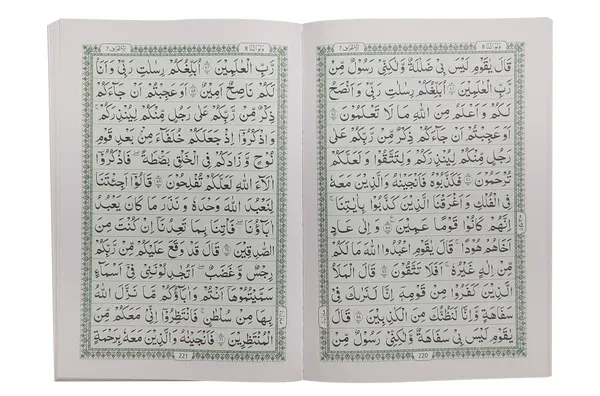 وَلَوْ اَنَّنَا ٨ اَلْاَعْرَاف ٧
قَالَ يٰقَوْمِ لَيْسَ بِيْ ضَلٰلَةٌ وَّلٰكِنِّيْ رَسُوْلٌ مِّنْ
رَّبِّ الْعٰلَمِيْنَ ۝ اُبَلِّغُكُمْ رِسٰلٰتِ رَبِّيْ وَاَنْصَحُ
لَكُمْ وَاَعْلَمُ مِنَ اللّٰهِ مَا لَا تَعْلَمُوْنَ ۝
اَوَعَجِبْتُمْ اَنْ جَآءَكُمْ ذِكْرٌ مِّنْ رَّبِّكُمْ عَلٰى
رَجُلٍ مِّنْكُمْ لِيُنْذِرَكُمْ وَلِتَتَّقُوْا وَلَعَلَّكُمْ
تُرْحَمُوْنَ ۝ فَكَذَّبُوْهُ فَاَنْجَيْنٰهُ وَالَّذِيْنَ مَعَهٗ
فِي الْفُلْكِ وَاَغْرَقْنَا الَّذِيْنَ كَذَّبُوْا بِاٰيٰتِنَا ؕ
اِنَّهُمْ كَانُوْا قَوْمًا عَمِيْنَ ۝ وَاِلٰى عَادٍ
اَخَاهُمْ هُوْدًا ؕ قَالَ يٰقَوْمِ اعْبُدُوا اللّٰهَ مَا لَكُمْ
مِّنْ اِلٰهٍ غَيْرُهٗ ؕ اَفَلَا تَتَّقُوْنَ ۝ قَالَ الْمَلَاُ
الَّذِيْنَ كَفَرُوْا مِنْ قَوْمِهٖۤ اِنَّا لَنَرٰىكَ فِيْ
سَفَاهَةٍ وَّاِنَّا لَنَظُنُّكَ مِنَ الْكٰذِبِيْنَ ۝ قَالَ
يٰقَوْمِ لَيْسَ بِيْ سَفَاهَةٌ وَّلٰكِنِّيْ رَسُوْلٌ مِّنْ
220
وَلَوْ اَنَّنَا ٨ اَلْاَعْرَاف ٧
رَّبِّ الْعٰلَمِيْنَ ۝ اُبَلِّغُكُمْ رِسٰلٰتِ رَبِّيْ وَاَنَا
لَكُمْ نَاصِحٌ اَمِيْنٌ ۝ اَوَعَجِبْتُمْ اَنْ جَآءَكُمْ
ذِكْرٌ مِّنْ رَّبِّكُمْ عَلٰى رَجُلٍ مِّنْكُمْ لِيُنْذِرَكُمْ ؕ
وَاذْكُرُوْۤا اِذْ جَعَلَكُمْ خُلَفَآءَ مِنْۢ بَعْدِ قَوْمِ
نُوْحٍ وَّزَادَكُمْ فِي الْخَلْقِ بَصْۜطَةً ۚ فَاذْكُرُوْۤا
اٰلَآءَ اللّٰهِ لَعَلَّكُمْ تُفْلِحُوْنَ ۝ قَالُوْۤا اَجِئْتَنَا
لِنَعْبُدَ اللّٰهَ وَحْدَهٗ وَنَذَرَ مَا كَانَ يَعْبُدُ
اٰبَآؤُنَا ۚ فَاْتِنَا بِمَا تَعِدُنَاۤ اِنْ كُنْتَ مِنَ
الصّٰدِقِيْنَ ۝ قَالَ قَدْ وَقَعَ عَلَيْكُمْ مِّنْ رَّبِّكُمْ
رِجْسٌ وَّغَضَبٌ ؕ اَتُجَادِلُوْنَنِيْ فِيْۤ اَسْمَآءٍ
سَمَّيْتُمُوْهَاۤ اَنْتُمْ وَاٰبَآؤُكُمْ مَّا نَزَّلَ اللّٰهُ
بِهَا مِنْ سُلْطٰنٍ ؕ فَانْتَظِرُوْۤا اِنِّيْ مَعَكُمْ مِّنَ
الْمُنْتَظِرِيْنَ ۝ فَاَنْجَيْنٰهُ وَالَّذِيْنَ مَعَهٗ بِرَحْمَةٍ
221